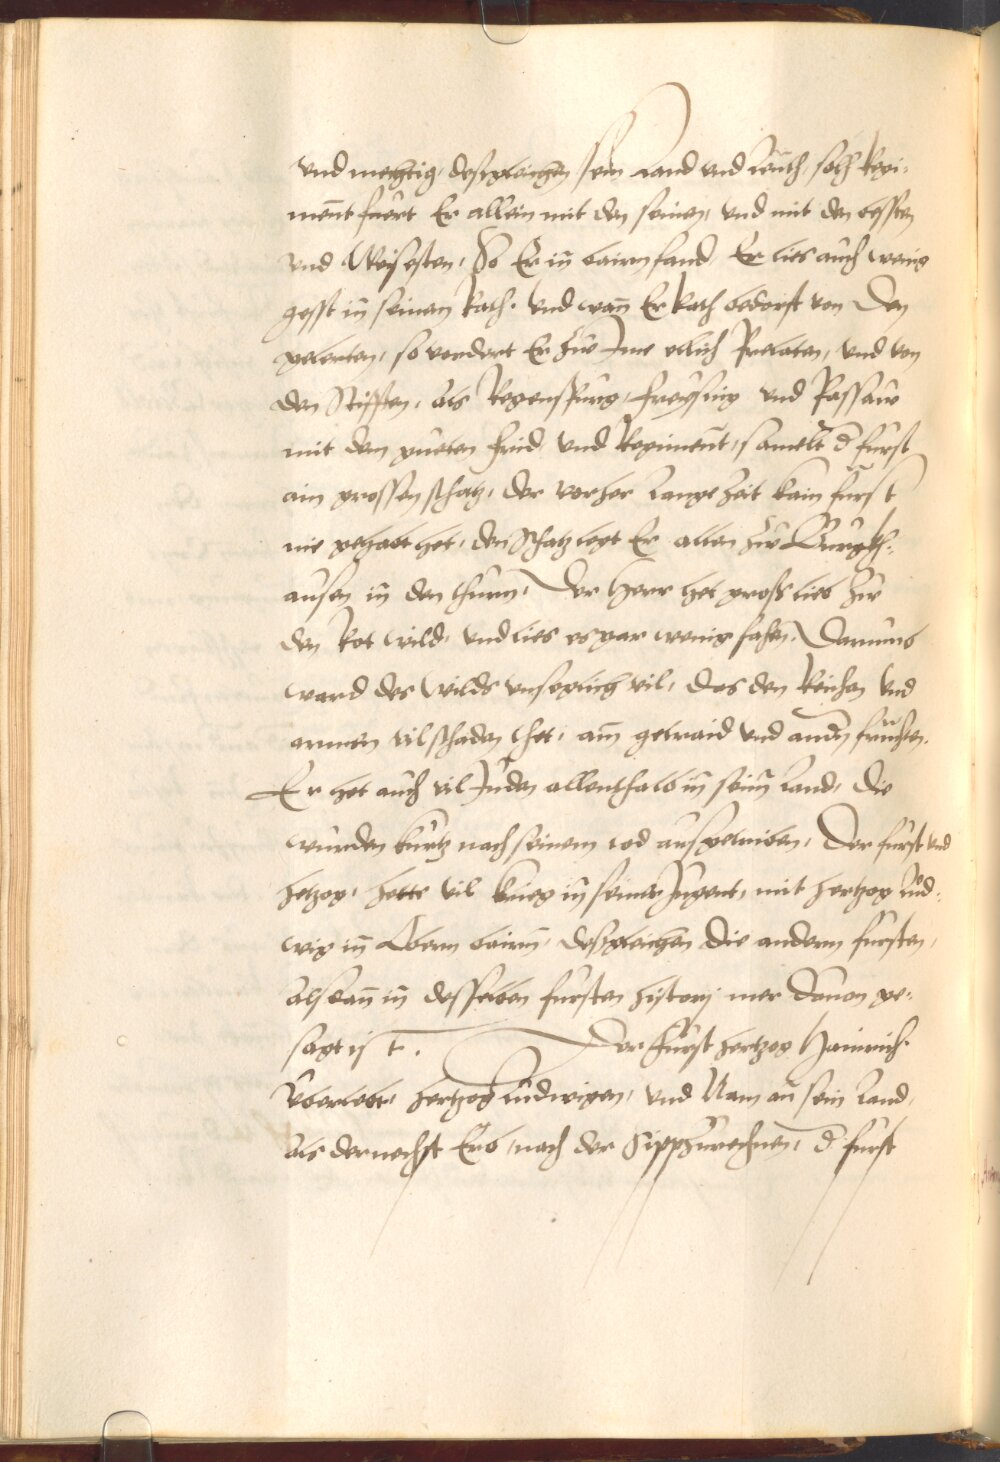 vnd mechtig, desgleichen sein Land vnd Leüth, solh Regi-
ment fuert Er allein mit den seinen, vnd mit den besten
vnd Weisesten, So Er in bairn fand, Er lies auch wenig
gesst in seinen Rath. vnd wan Er Rath bedorft von den
gelerten, so vordert Er zue Ime etlich Prelaten, vnd von
den Stifften, als Regenspurg, Freysing vnd Passaw
mit dem gueten Frid, vnd Regiment, samelt d fürst
ain grossen schatz, der vorher Lange Zeit kain fürst
nie gehabt het, den Schatz legt Er allen zue Burgkh-
ausen in den thurn, Der Herr het gross lieb zue
den Rot wild, vnd lies es gar wenig fahen, Darumb
ward des Wilds vnseglich vil, das den Reichen vnd
armen vil schaden thet, am getraid vnd andn früchten.
Er het auch vil Juden allenthalb in seim Land, Die
wurden kurtz nach seinem tod aussgetriben, Der fürst vnd
hetzog, hette vil krieg in seiner Jugent, mit hertzog Lud-
wig in Obern bairn, desgleichen die andern fürsten,
alsdan in desselben fürsten history mer dauon ge-
sagt ist. Der fürst hertzog Hainrich
vberlebt, hertzog Ludwigen, vnd Nam an sein Land,
als der nechst Erb, nach der Sipp zurechnen, d fürst